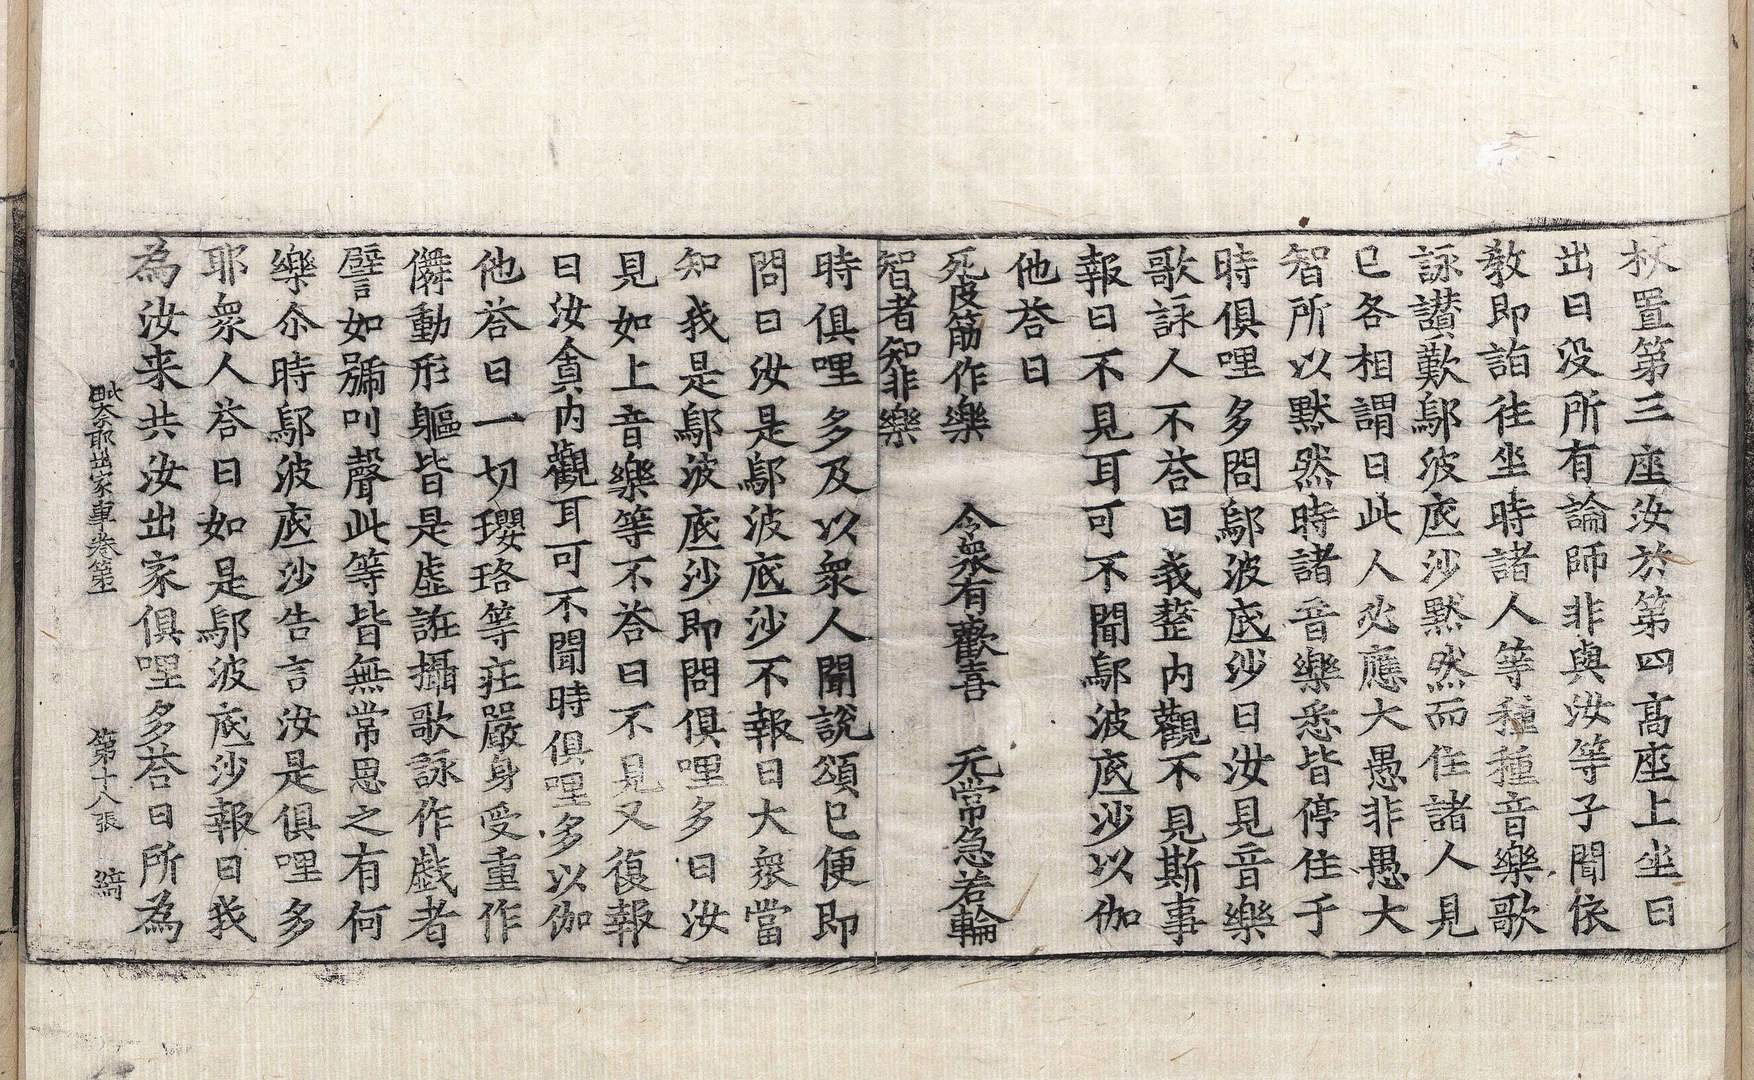 杖置第三座汝於第四高座上坐曰
出曰没所有論師非與汝等子聞依
教即詣往坐時諸人等種種音樂歌
詠讃歎鄔波底沙黙然而住諸人見
已各相謂曰此人必應大愚非愚大
智所以黙然時諸音樂悉皆停住于
時俱哩多問鄔波底沙曰汝見音樂
歌詠人不荅曰我整内觀不見斯事
報曰不見耳可不聞鄔波底沙以伽
他荅曰
死皮筋作樂　令衆有歡喜　无常急若輪
智者知非樂
時俱哩多及以衆人聞說頌已便即
問曰汝是鄔波底沙不報曰大衆當
知我是鄔波底沙即問俱哩多曰汝
見如上音樂等不荅曰不見又復報
曰汝貪内觀耳可不聞時俱哩多以伽
他荅曰一切瓔珞等莊嚴身受重作
儛動形軀皆是虛誑攝歌詠作戯者
譬如號叫聲此等皆無常思之有何
樂尒時鄔波底沙告言汝是俱哩多
耶衆人荅曰如是鄔波底沙報曰我
為汝来共汝出家俱哩多荅曰所為
毗奈耶出家事卷第一　第十八張